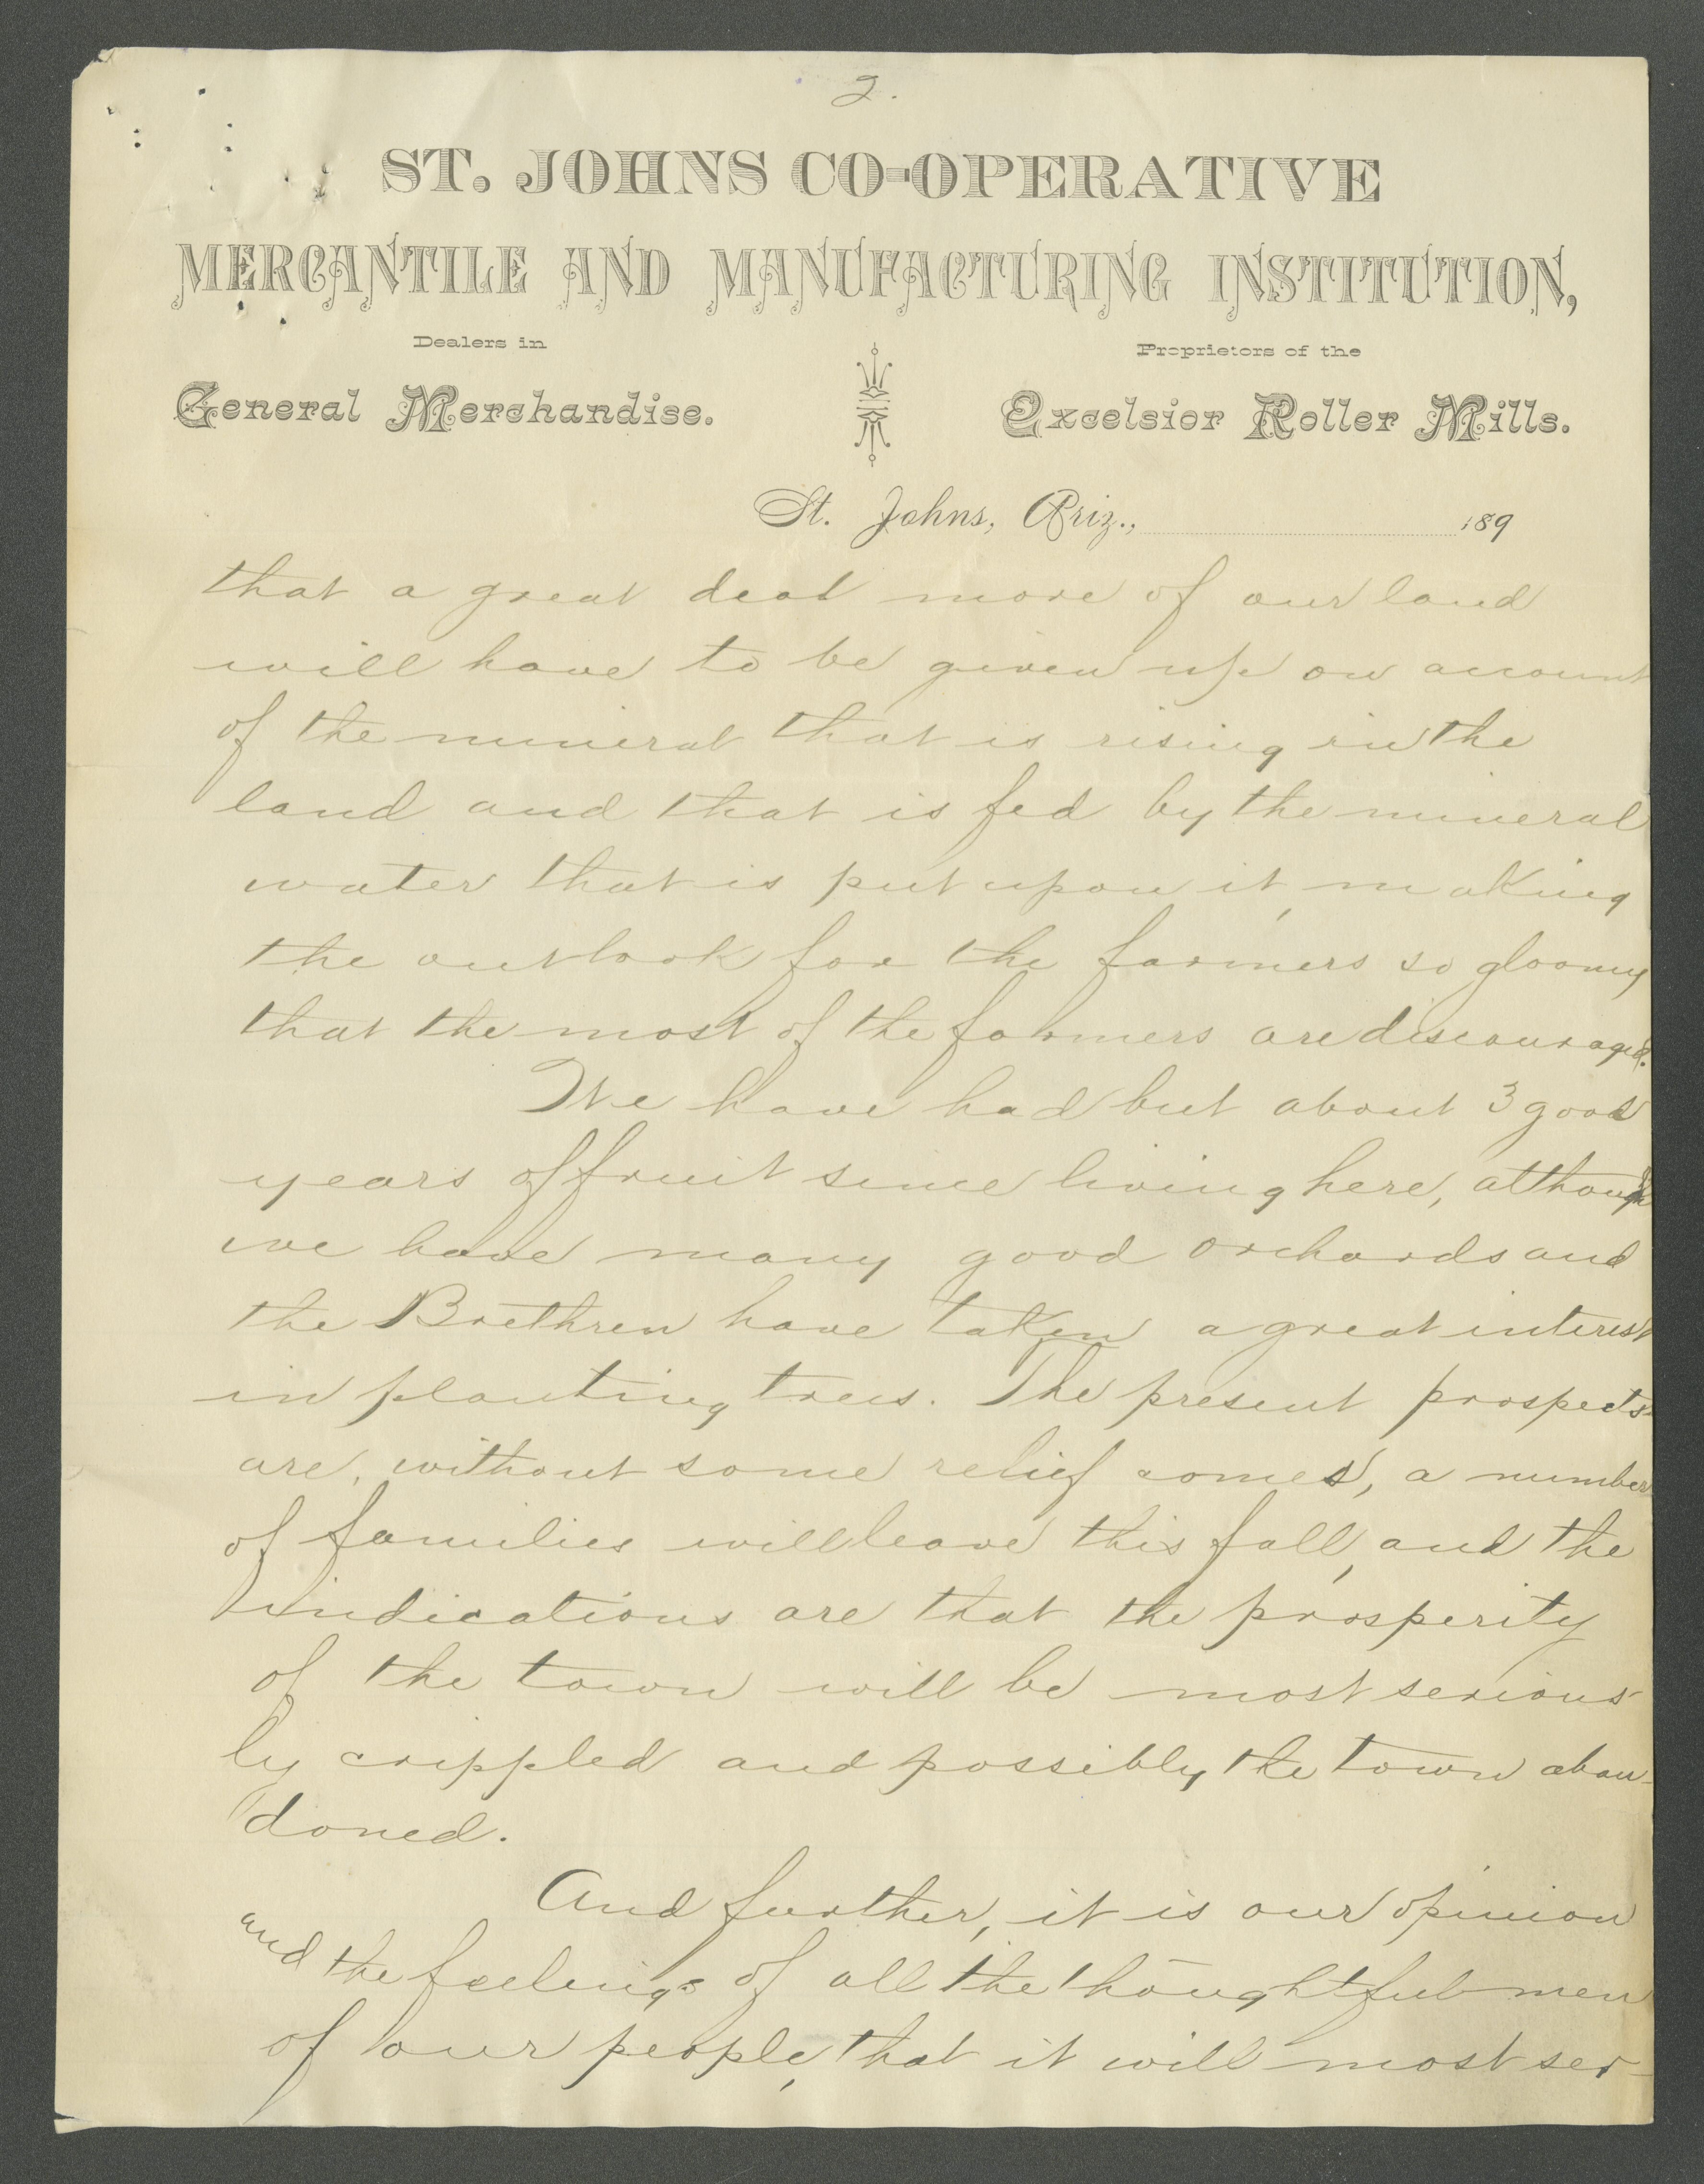 2.
ST. JOHNS CO-OPERATIVE
MERCANTILE AND MANUFACTURING INSTITUTION,
Dealers in
General Merchandise.
Proprietors of the
Excelsior Roller Mills.
St. Johns, Ariz., 189
that a great deal more of our land
will have to be given up on account
of the mineral that is rising in the
land and that is fed by the mineral
water that is put upon it, making
the outlook for the farmers so gloomy
that the most of the farmers are discouraged.
We have had but about 3 good
years of fruit since living here, although
we have many good orchards and
the Brethren have taken a great interest
in planting trees. The present prospects
are, without some relief comes, a number
of families will leave this fall, and the
indications are that the prosperity
of the town will be most serious-
ly crippled and possibly the town aban-
doned.
And further, it is our opinion
and the feelings of all the thoughtful men
of our people, that it will most ser-